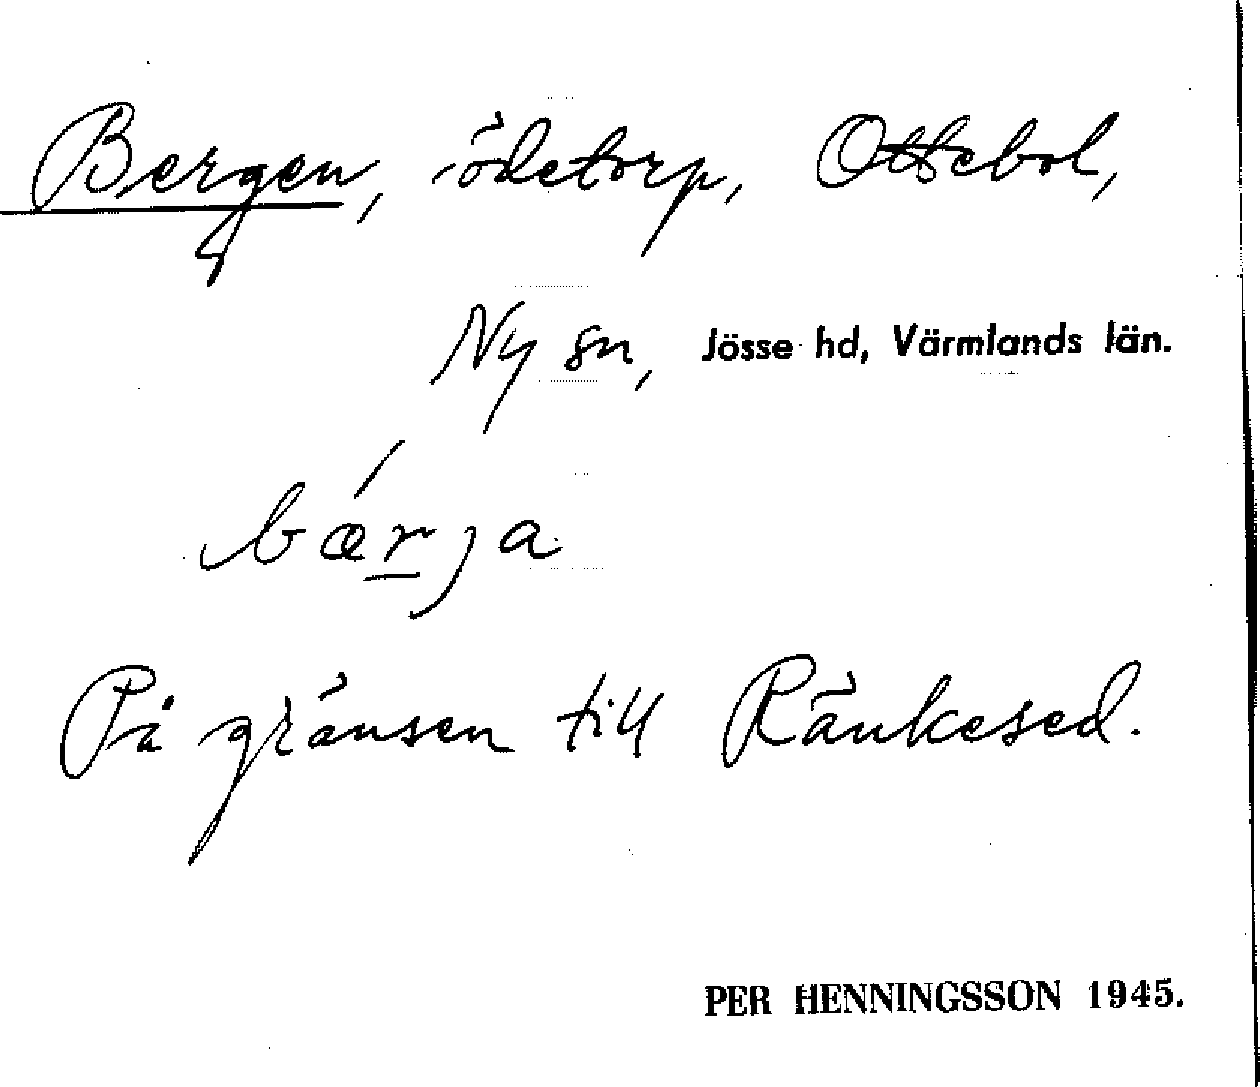 Bergen, ödetorp, Ottebol,
Ny sn, Jösse hd, Värmlands län.
bæ´rja
På gränsen till Ränkesed.
PER HENNINGSSON 1945.